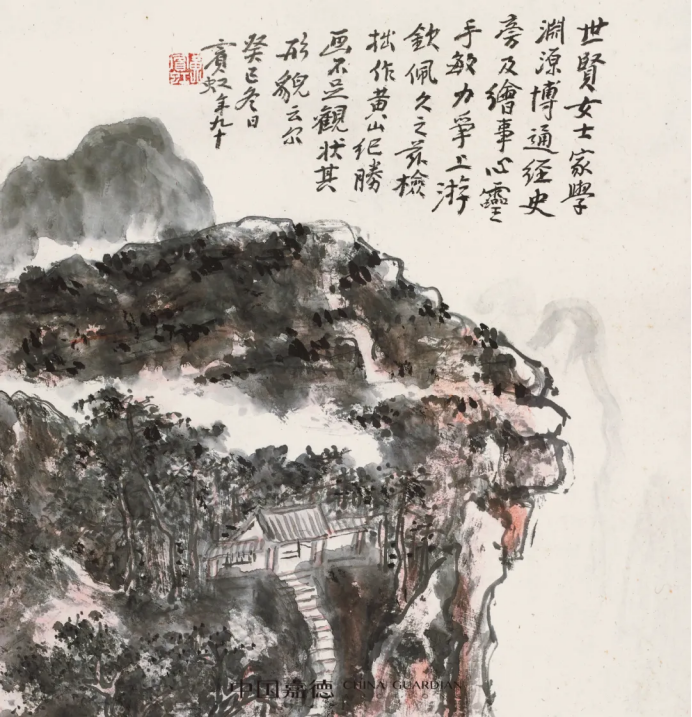 世賢女士家學
淵源博通經史
旁及繪事心靈
手敏力爭上游
欽佩久之茲檢
拙作黃山紀勝
画不足觀狀其
形貌云尔
癸巳冬日
賓虹年九十
中国嘉德 CHINA GUARDIAN